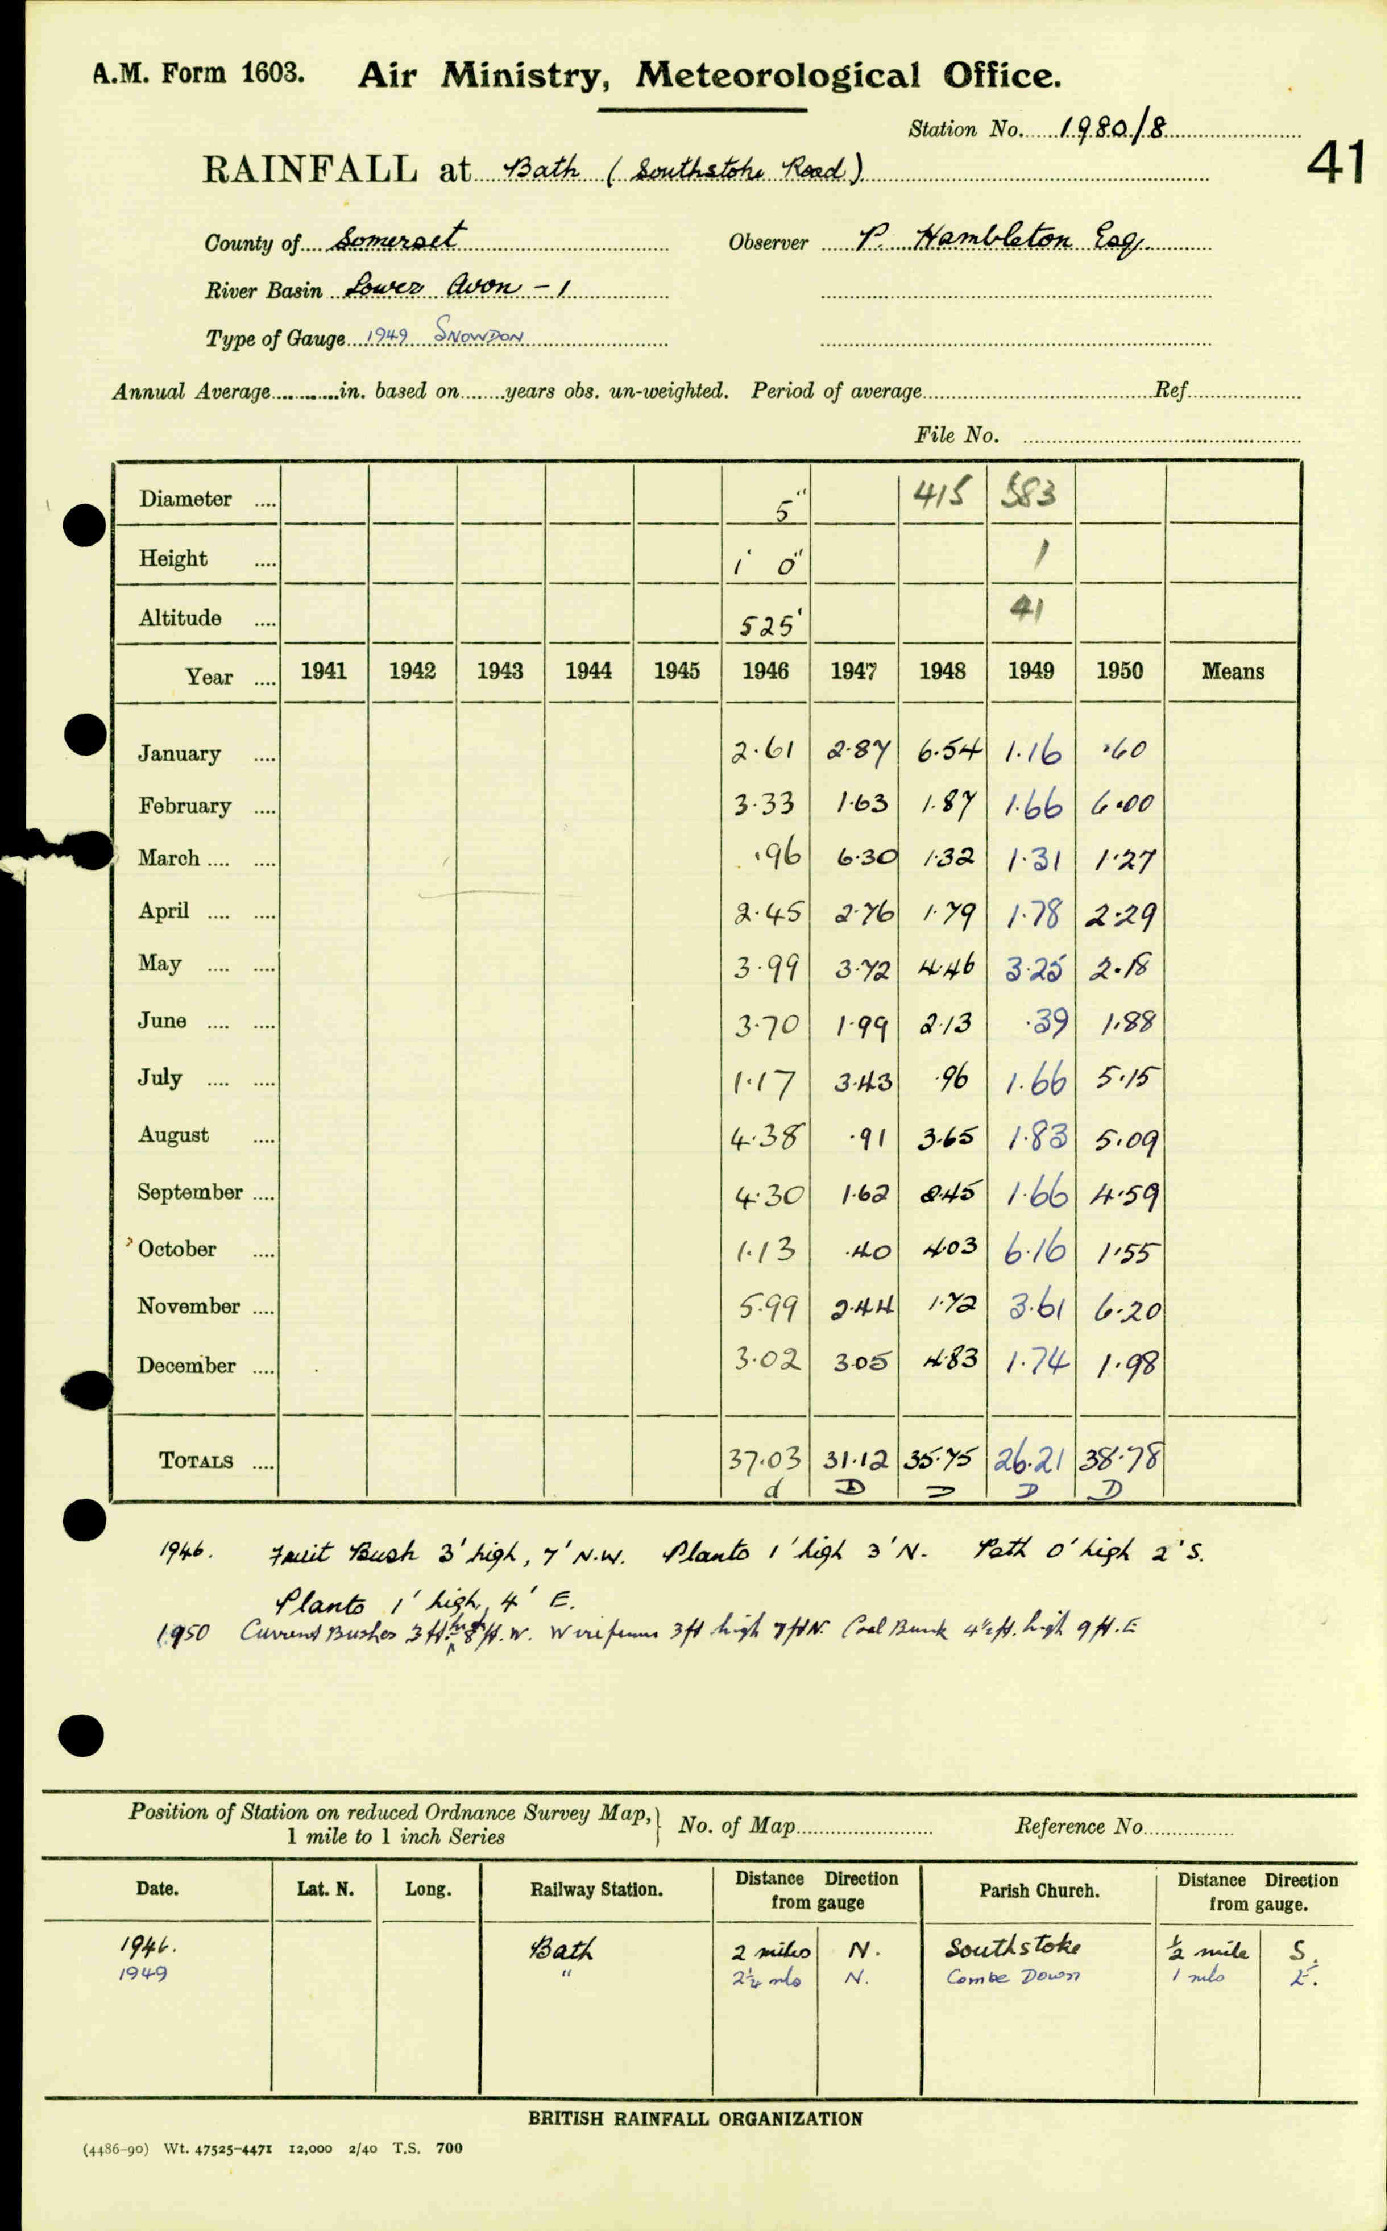 A.M. Form 1603. Air Ministry, Meteorological Office.
Station No. 1980/8
41
RAINFALL at Bath (Southstoke Road)
County of Somerset Observer P. Hambleton Esq.
River Basin Lower Avon - 1
Type of Gauge 1949 SNOWDON
Annual Average in. based on years obs. un-weighted. Period of average Ref.
File No.
Diameter 5" 415 583
Height 1' 0" 1
Altitude 525' 41
Year 1941 1942 1943 1944 1945 1946 1947 1948 1949 1950 Means
January 2.61 2.87 6.54 1.16 .60
February 3.33 1.63 1.87 1.66 6.00
March .96 6.30 1.32 1.31 1.27
April 2.45 2.76 1.79 1.78 2.29
May 3.99 3.72 4.46 3.25 2.18
June 3.70 1.99 2.13 .39 1.88
July 1.17 3.43 .96 1.66 5.15
August 4.38 .91 3.65 1.83 5.09
September 4.30 1.62 2.45 1.66 4.59
October 1.13 .40 4.03 6.16 1.55
November 5.99 2.44 1.72 3.61 6.20
December 3.02 3.05 4.83 1.74 1.98
TOTALS 37.03 31.12 35.75 26.21 38.78
d D D D D
1946. Fruit Bush 3' high, 7' N.W. Plants 1' high 3' N. Path 0' high 2' S.
Plants 1' high, 4' E.
1950 Currant Bushes 3ft. high 8ft. W. Wire fence 3ft high 7ft N. Coal Bunk 4½ft. high 9ft. E
Position of Station on reduced Ordnance Survey Map, No. of Map Reference No.
1 mile to 1 inch Series
Date. Lat. N. Long. Railway Station. Distance Direction from gauge Parish Church. Distance Direction from gauge.
1946. Bath 2 miles N. Southstoke ½ mile S.
1949 " 2¼ mls N. Combe Down 1 mls E.
BRITISH RAINFALL ORGANIZATION
(4486-90) Wt. 47525-4471 12,000 2/40 T.S. 700